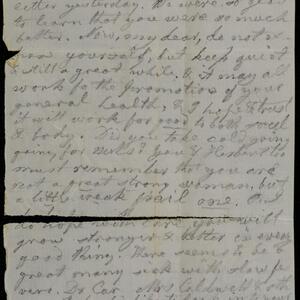 letter yesterday. We were so glad
to learn that you were so much
better. Now, my dear, do not ex-
pose yourself, but keep quiet
& still a great while, & it may all
work to the promotion of your
general health, & I hope & trust
it will work for good to both soul
& body. Did you take cold going
you & Herbert
must remember that you are
not a great strong woman, but
a little weak frail one. And
do hope with care you will
grow stronger & better in every
good thing. There seem to be a
great many sick with slow fe-
vers. Dr Car Mrs Caldwell & both